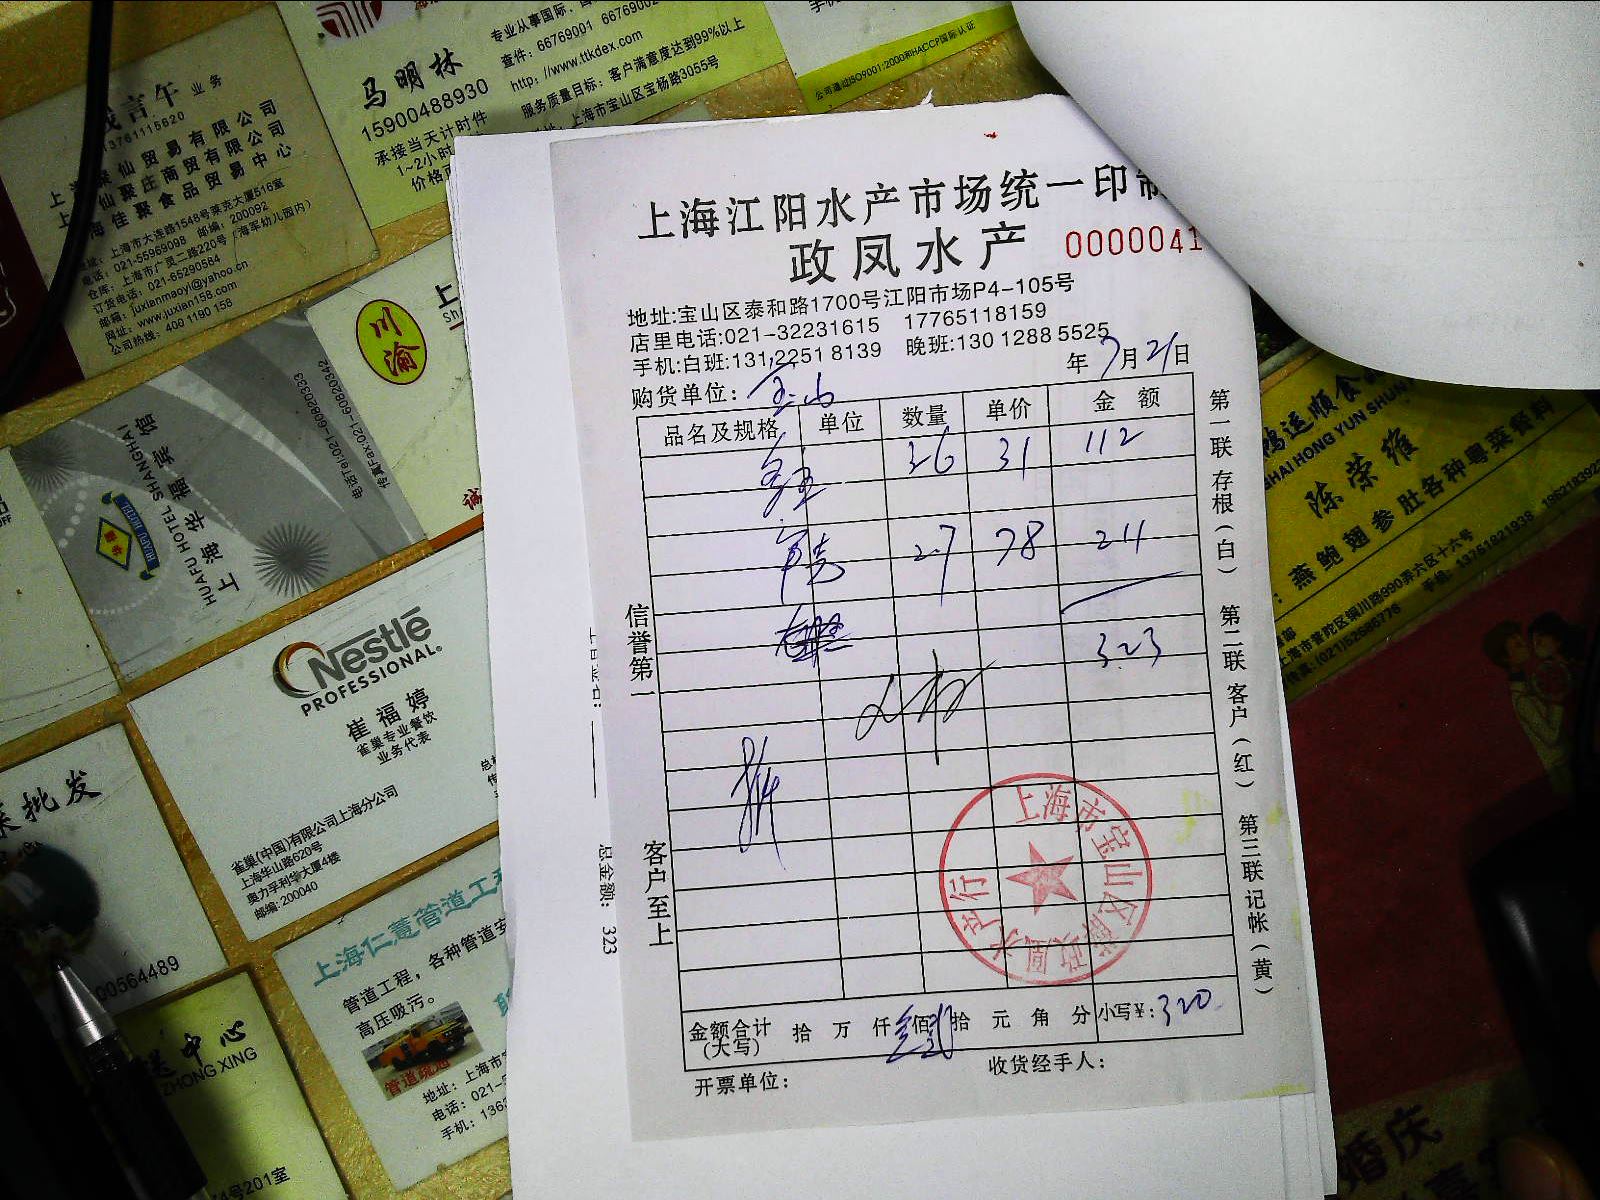 业务
13761115620
上海聚仙贸易有限公司
上海仙聚庄商贸有限公司
上海佳聚食品贸易中心
地址：上海市大连路1548号莱克大厦516室
电话：021-55969098 邮编：200092
仓库：上海市广灵二路220号（海军幼儿园内）
订货电话：021-65290584
邮箱：juxianmaoyi@yahoo.cn
网址：www.juxian158.com
公司热线：400 1190 158
马明林
15900488930
承接当天计时件
1~2小时
价格
专业从事国际、
查件：66769001 66769002
http://www.ttkdex.com
服务质量目标：客户满意度达到99%以上
上海市宝山区宝杨路3055号
公司通过ISO9001:2000和HACCP国际认证
川渝
诚
HUAFU HOTEL
HUAFU HOTEL SHANGHAI
上海华福宾馆
电话Tel:021-60820333
传真Fax:021-60820342
Nestlé
PROFESSIONAL.
崔福婷
雀巢专业餐饮
业务代表
雀巢(中国)有限公司上海分公司
上海华山路620号
奥力孚利华大厦4楼
邮编: 200040
批发
00564489
送中心
ZHONG XING
4号201室
上海仁薏管道工程
管道工程，各种管道安
高压吸污。
管道疏通
地址：上海市
电话：021-
手机：136
上海江阳水产市场统一印制
政凤水产
0000041
地址:宝山区泰和路1700号江阳市场P4-105号
店里电话:021-32231615 17765118159
手机:白班:131 2251 8139 晚班:130 1288 5525
年7月21日
购货单位：宝山
品名及规格 单位 数量 单价 金额
36 31 112
2.7 78 211
323
信誉第一
客户至上
第一联存根(白) 第二联客户(红) 第三联记帐(黄)
上海市宝山区政凰水产行
金额合计(大写) 拾 万 仟 佰 拾 元 角 分 小写¥:320
开票单位：
收货经手人：
总金额：323
鸿运顺食
SHAI HONG YUN SHUN
陈荣维
燕鲍翅参肚各种粤菜餐料
上海市普陀区铜川路990弄六区十六号
传真:(021)52686776 手机：13761821938 18621839
婚庆